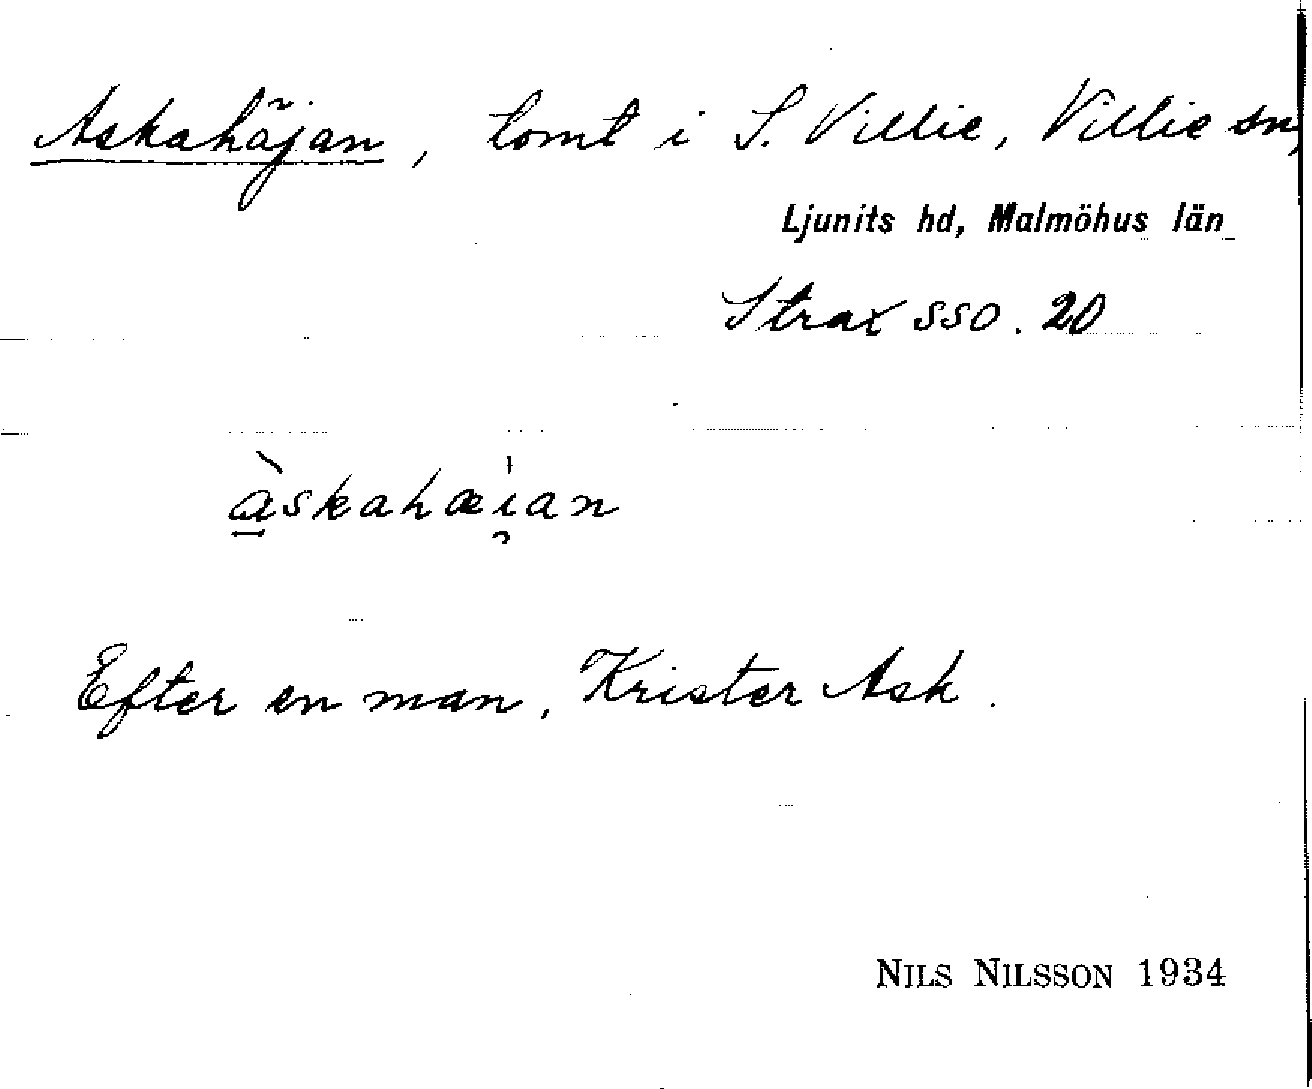 Askahäjan, tomt i S. Villie, Villie sn,
Ljunits hd, Malmöhus län
Strax SSO. 20
àskahæi̯an
Efter en man, Krister Ask.
NILS NILSSON 1934